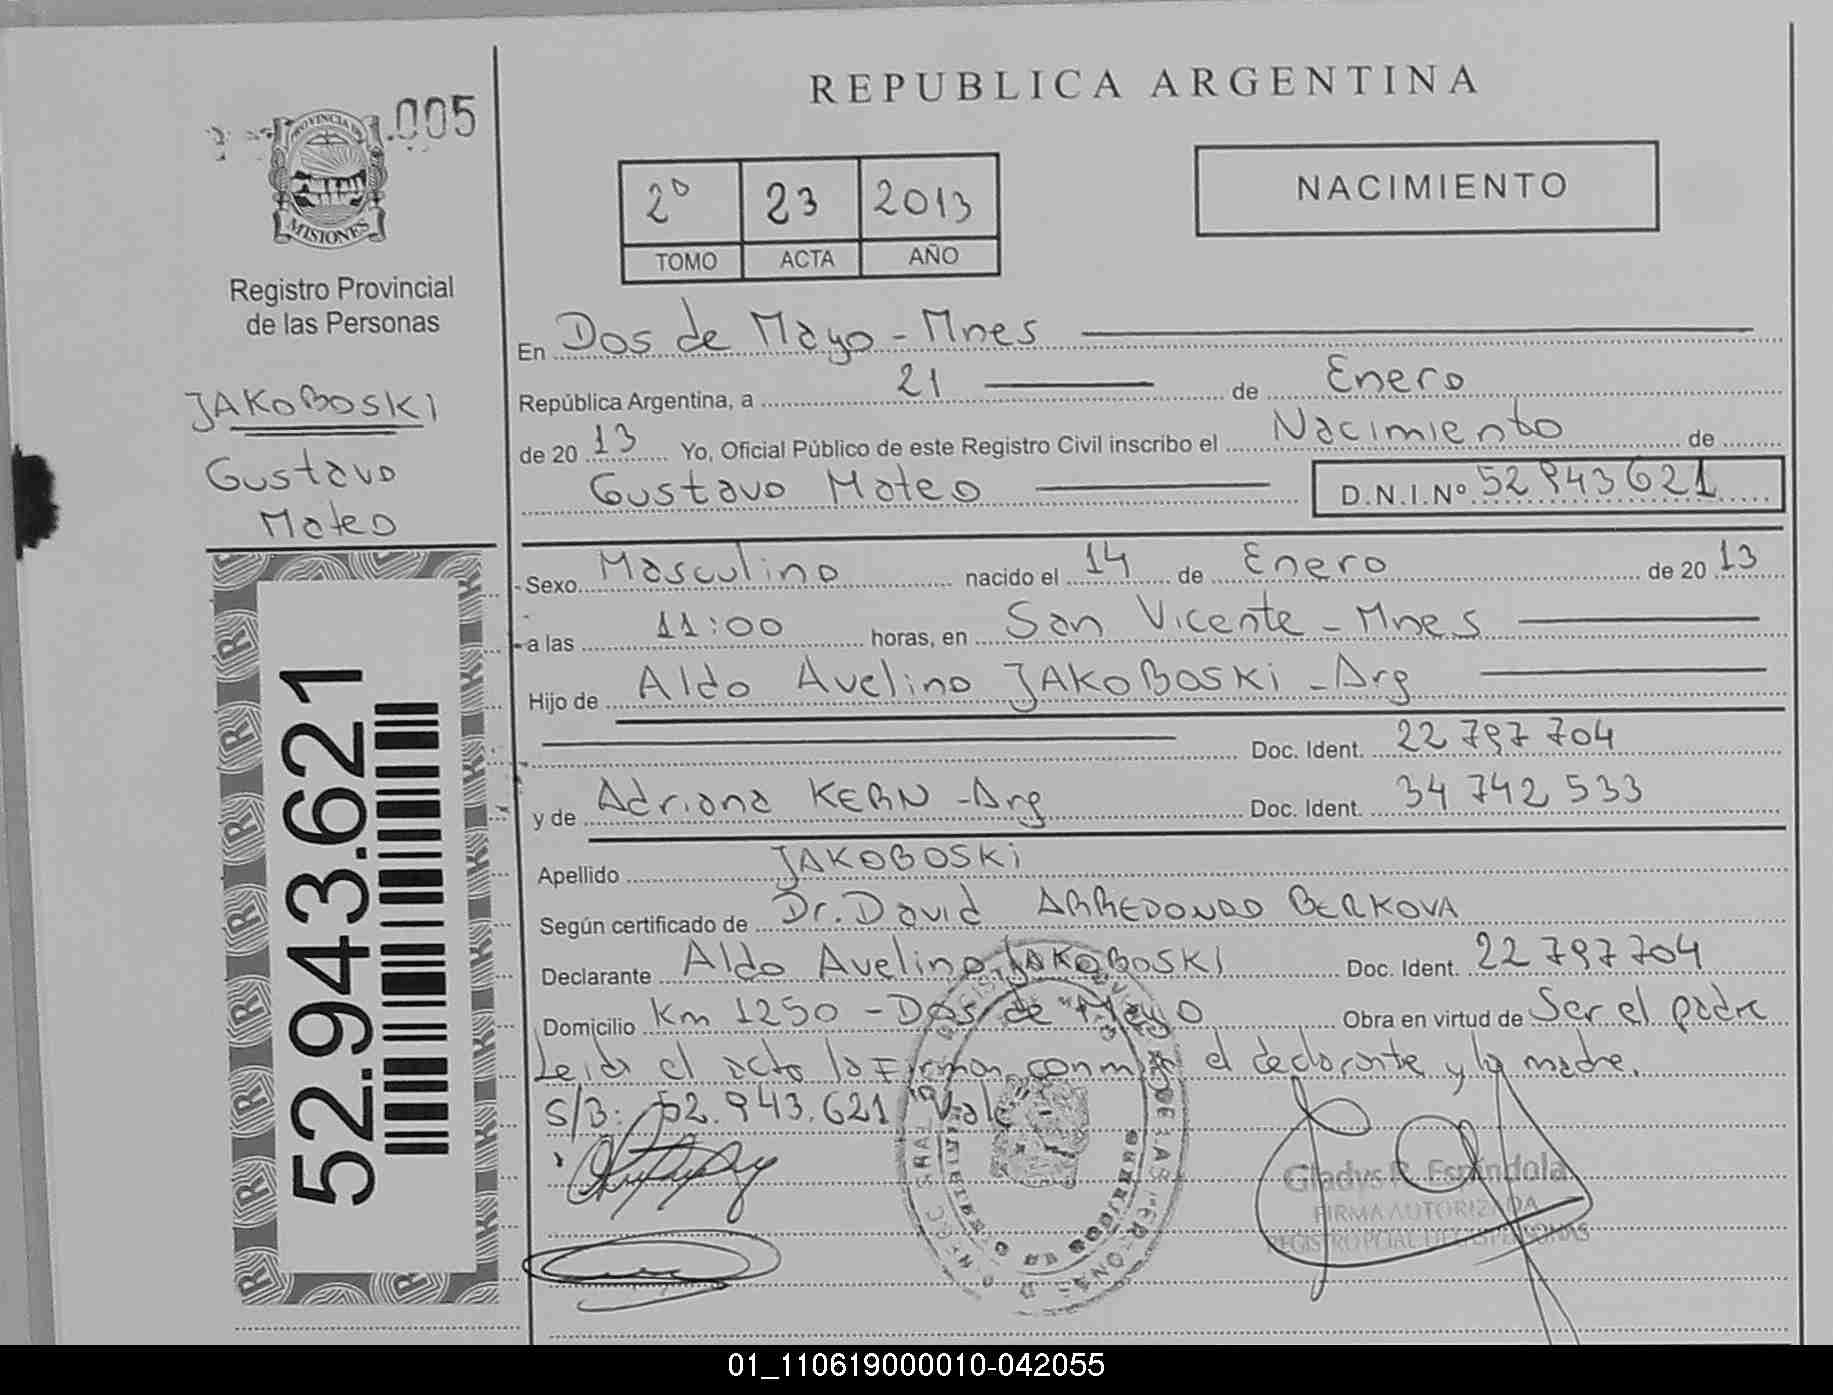 REPUBLICA ARGENTINA
.005
PROVINCIA DE
MISIONES
Registro Provincial
de las Personas
JAKOBOSKI
Gustavo
Mateo
52.943.621
2º 23 2013
TOMO ACTA AÑO
NACIMIENTO
En Dos de Mayo - Mnes
República Argentina, a 21 de Enero
de 20 13 Yo, Oficial Público de este Registro Civil inscribo el Nacimiento de
Gustavo Mateo D.N.I.Nº 52943621
Sexo Masculino nacido el 14 de Enero de 20 13
a las 11:00 horas, en San Vicente - Mnes
Hijo de Aldo Avelino JAKOBOSKi - Arg
Doc. Ident. 22 797 704
y de Adriana KERN - Arg Doc. Ident. 34 742 533
Apellido JAKOBOSKi
Según certificado de Dr. David ARREDONDO BERKOVA
Declarante Aldo Avelino JAKOBOSKI Doc. Ident. 22 797 704
Domicilio Km 1250 - Dos de Mayo Obra en virtud de Ser el padre
Leida el acta la Firman conmigo el declarante y la madre.
S/B: 52.943.621 "Vale"
Gladys R. Espíndola
FIRMA AUTORIZADA
REGISTRO PCIAL DE LAS PERSONAS
01_110619000010-042055